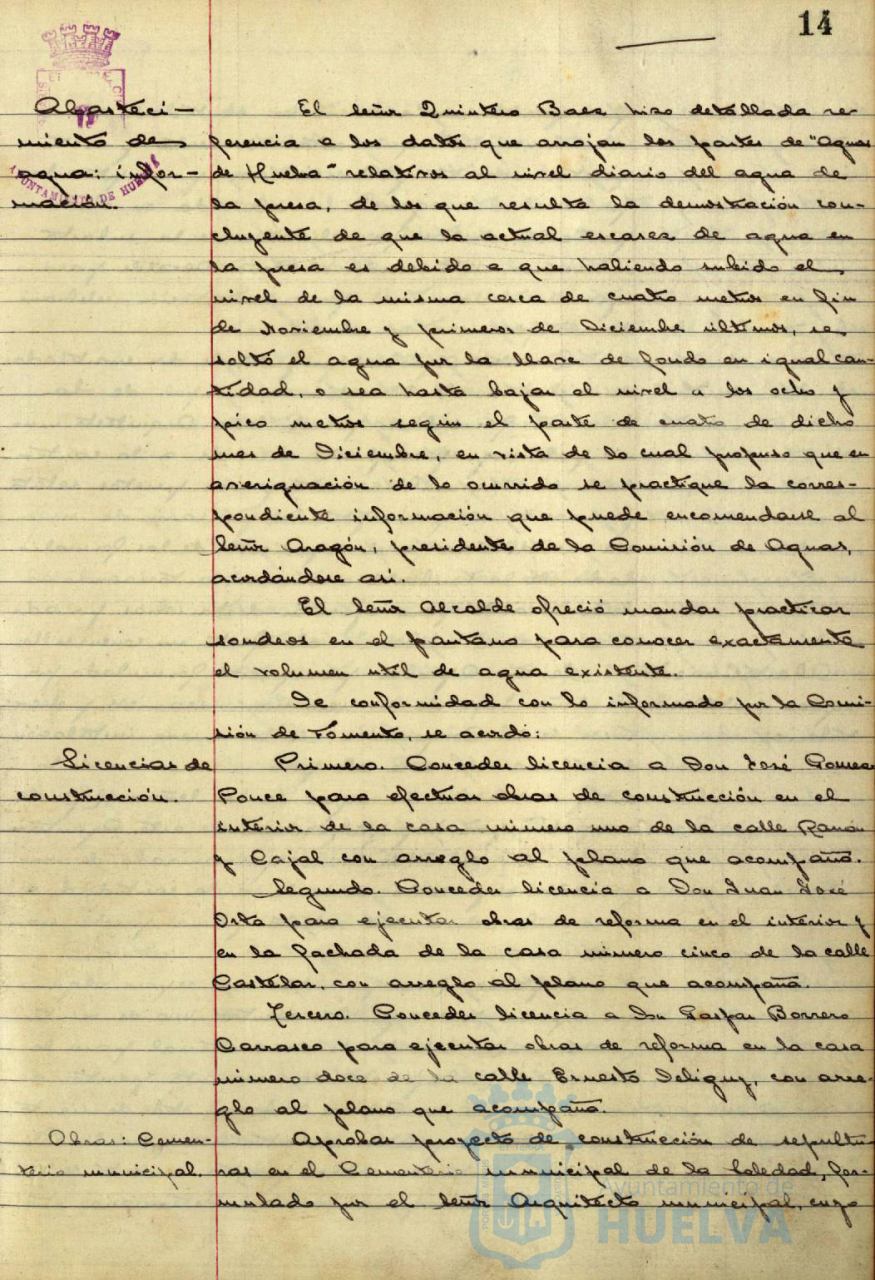 14
Abasteci-
miento de
agua: infor-
mación.
El Señor Quintero Baez hizo detallada re-
ferencia a los datos que arrojan los partes de "Aguas
de Huelva" relativos al nivel diario del agua de
la presa, de los que resulta la demostración con-
cluyente de que la actual escasez de agua en
la presa es debido a que habiendo subido el
nivel de la misma cerca de cuatro metros en fin
de Noviembre y primeros de Diciembre últimos, se
soltó el agua por la llave de fondo en igual can-
tidad, o sea hasta bajar el nivel a los ocho y
pico metros según el parte de cuatro de dicho
mes de Diciembre, en vista de lo cual propuso que en
averiguación de lo ocurrido se practique la corres-
pondiente información que puede encomendarse al
Señor Aragón, presidente de la Comisión de Aguas,
acordándose así.
El Señor Alcalde ofreció mandar practicar
sondeos en el pantano para conocer exactamente
el volumen util de agua existente.
De conformidad con lo informado por la Comi-
sión de Fomento, se acordó:
Licencias de
construcción.
Primero. Conceder licencia a Don José Gomez
Ponce para efectuar obras de construcción en el
interior de la casa número uno de la calle Ramón
y Cajal con arreglo al plano que acompaña.
Segundo. Conceder licencia a Don Juan José
Orta para ejecutar obras de reforma en el interior y
en la fachada de la casa número cinco de la calle
Castelar, con arreglo al plano que acompaña.
Tercero. Conceder licencia a Don Gaspar Borrero
Carrasco para ejecutar obras de reforma en la casa
número doce de la calle Ernesto Deligny, con arre-
glo al plano que acompaña.
Obras: Cemen-
terio municipal.
Aprobar proyecto de construcción de sepultu-
ras en el Cementerio municipal de la Soledad, for-
mulado por el Señor Arquitecto municipal, cuyo
AYUNTAMIENTO DE HUELVA
Ayuntamiento de
HUELVA